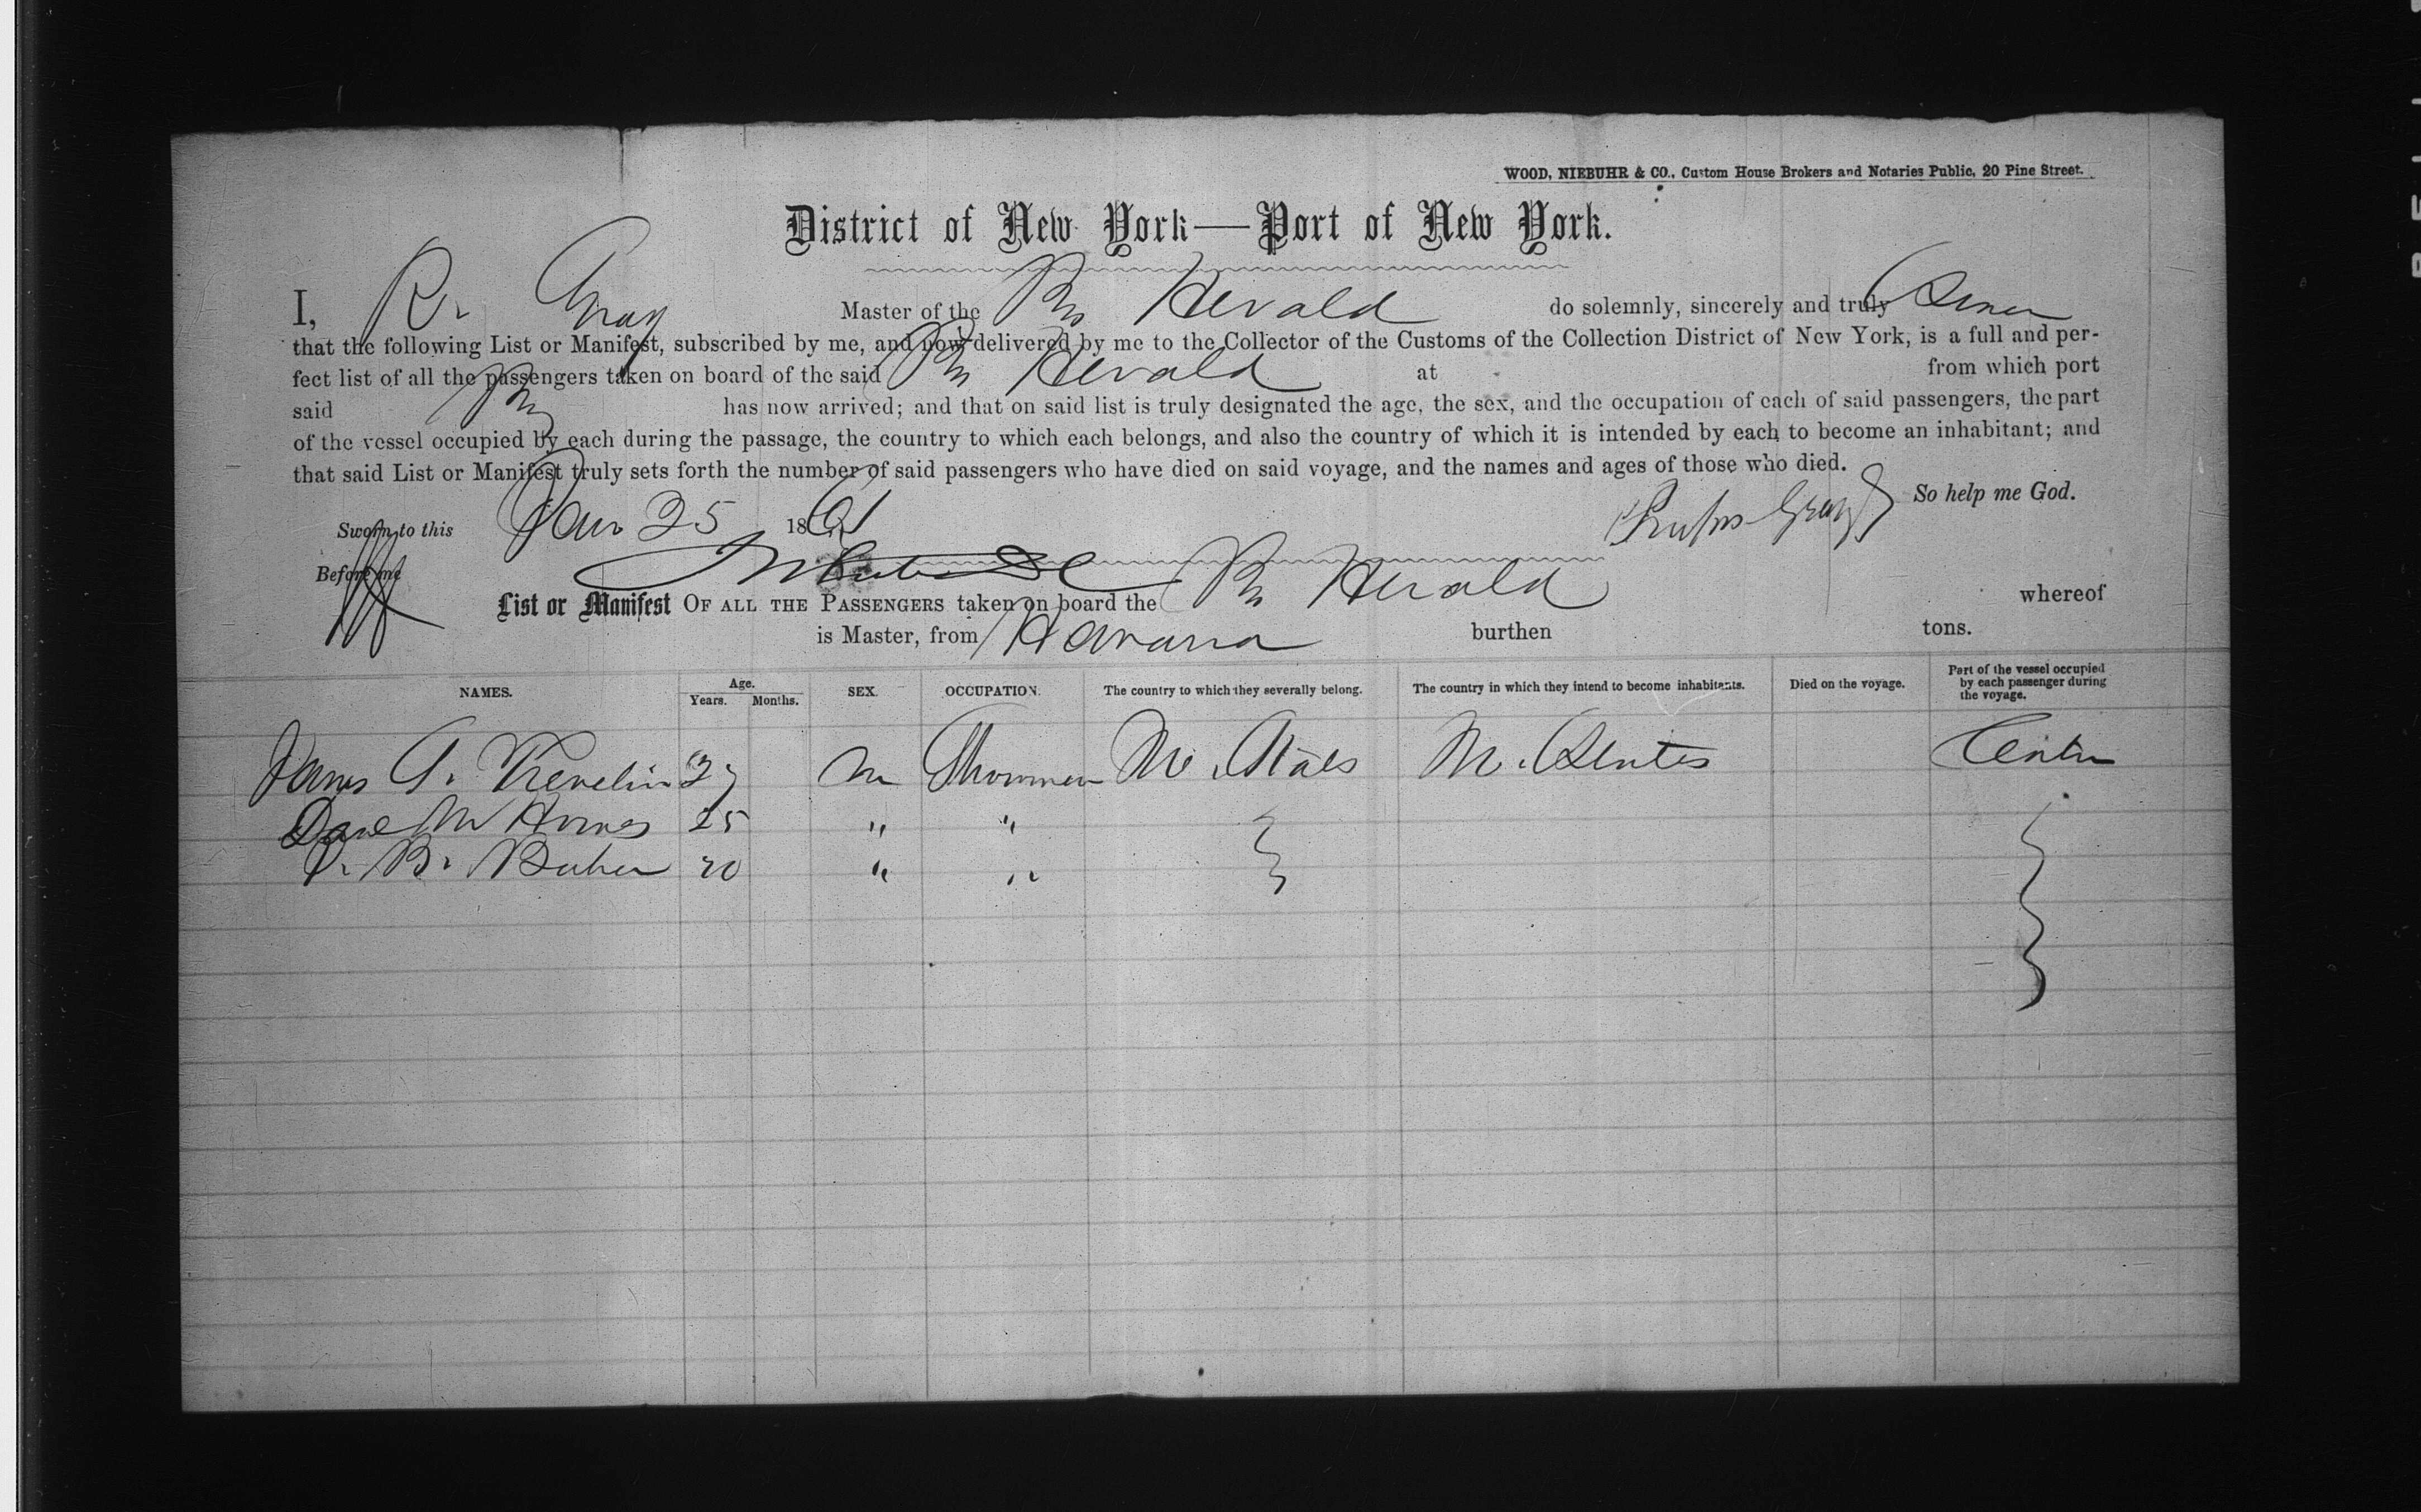 WOOD, NIEBUHR & CO., Custom House Brokers and Notaries Public, 20 Pine Street.
District of New York—Port of New York.
I, R. Gray Master of the Herald do solemnly, sincerely and truly Swear
that the following List or Manifest, subscribed by me, and now delivered by me to the Collector of the Customs of the Collection District of New York, is a full and per-
fect list of all the passengers taken on board of the said Herald at from which port
said has now arrived; and that on said list is truly designated the age, the sex, and the occupation of each of said passengers, the part
of the vessel occupied by each during the passage, the country to which each belongs, and also the country of which it is intended by each to become an inhabitant; and
that said List or Manifest truly sets forth the number of said passengers who have died on said voyage, and the names and ages of those who died.
So help me God.
Sworn to this Jan 25 1861 Rufus Gray
Before me
List or Manifest OF ALL THE PASSENGERS taken on board the Herald whereof
is Master, from Havana burthen tons.
NAMES. Age. Years. Months. SEX. OCCUPATION. The country to which they severally belong. The country in which they intend to become inhabitants. Died on the voyage. Part of the vessel occupied by each passenger during the voyage.
James G. 27 m Showmen States States
25 " "
B. 20 " "